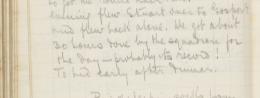 to get
evening flew Stuart over to Gosport
and flew back alone. We got about
30 hours done by the squadron for
the day – probably its record!
To bed early after dinner.